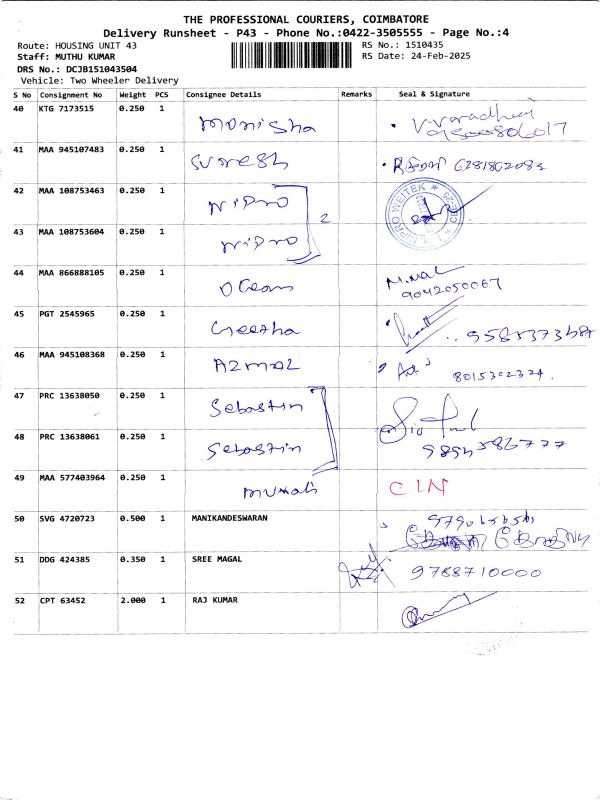 THE PROFESSIONAL COURIERS, COIMBATORE
Delivery Runsheet - P43 - Phone No.:0422-3505555 - Page No.:4
Route: HOUSING UNIT 43
RS No.: 1510435
Staff: MUTHU KUMAR
RS Date: 24-Feb-2025
DRS No.: DCJB151043504
Vehicle: Two Wheeler Delivery
S No Consignment No Weight PCS Consignee Details Remarks Seal & Signature
40 KTG 7173515 0.250 1 monisha
41 MAA 945107483 0.250 1 suresh
42 MAA 108753463 0.250 1 NiPro
2
43 MAA 108753604 0.250 1 NiPro
44 MAA 866888105 0.250 1 Ocean
9042050067
45 PGT 2545965 0.250 1 Geetha
46 MAA 945108368 0.250 1 AZMAL
8015302324
47 PRC 13638050 0.250 1 Sebastin
48 PRC 13638061 0.250 1 Sebastin
49 MAA 577403964 0.250 1 murali CIN
50 SVG 4720723 0.500 1 MANIKANDESWARAN
51 DDG 424385 0.350 1 SREE MAGAL 9788710000
52 CPT 63452 2.000 1 RAJ KUMAR